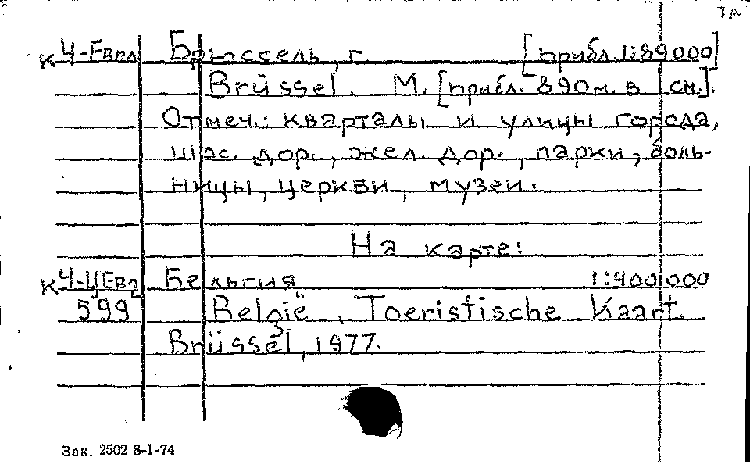 К Ч-Евр Брюссель, г. [прибл. 1:89 000]
Brüssel. М. [прибл. 890 м. в см.].
Отмеч.: кварталы и улицы города,
шос. дор., жел. дор., парки, боль-
ницы, церкви, музеи.
На карте:
К Ч-ЦЕвр Бельгия 1:400 000
599 België, Toeristische Kaart.
Brüssel, 1977.
Зак. 2502 8-1-74